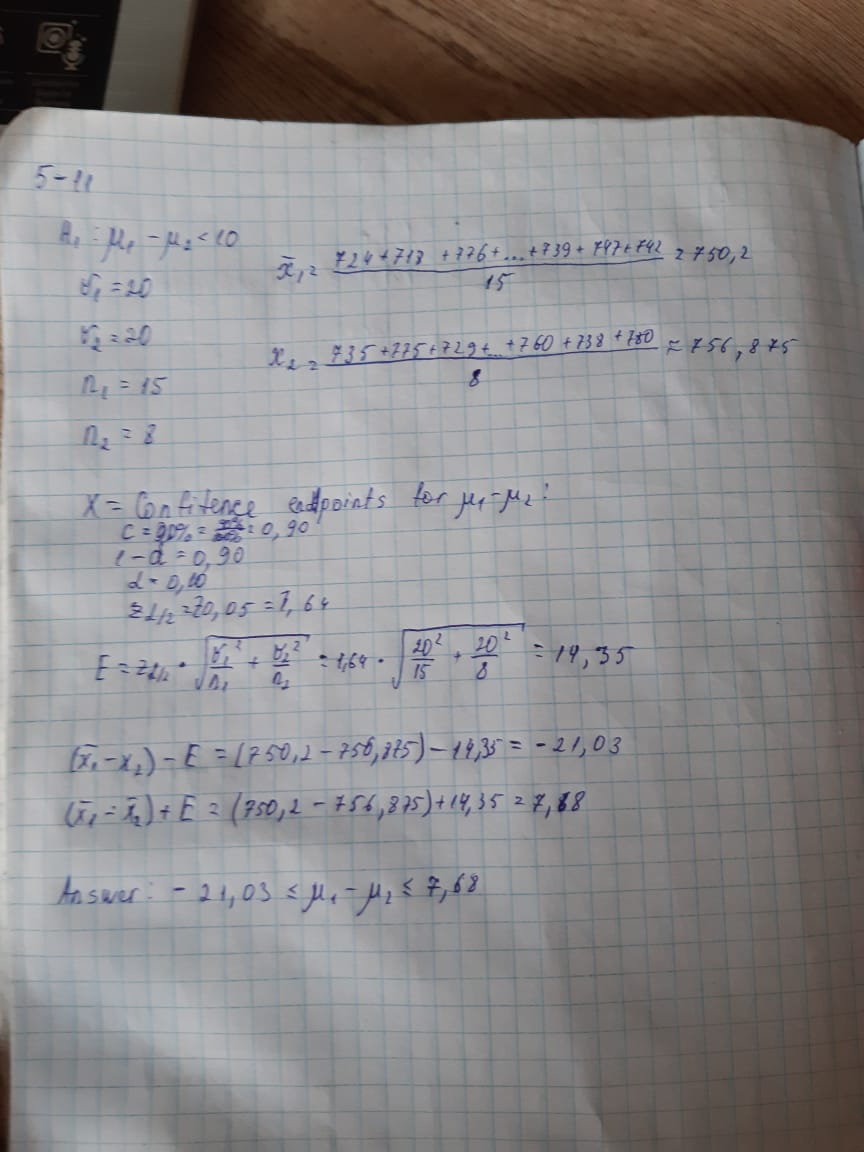 5-11
H₁: μ₁ - μ₂ < 10
σ₁ = 20
x̄₁ = (724 + 718 + 776 + ... + 739 + 747 + 742) / 15 = 750,2
σ₂ = 20
x₂ = (735 + 775 + 729 + ... + 760 + 738 + 780) / 8 ≈ 756,875
n₁ = 15
n₂ = 8
X = Confitence endpoints for μ₁-μ₂:
C = 90% = = 0,90
1 - α = 0,90
α = 0,10
z α/2 = z0,05 = 1,64
E = z α/2 · √(σ₁²/n₁ + σ₂²/n₂) = 1,64 · √(20²/15 + 20²/8) = 14,35
(x̄₁ - x₂) - E = (750,2 - 756,875) - 14,35 = -21,03
(x̄₁ - x̄₂) + E = (750,2 - 756,875) + 14,35 = 7,68
Answer: -21,03 ≤ μ₁ - μ₂ ≤ 7,68